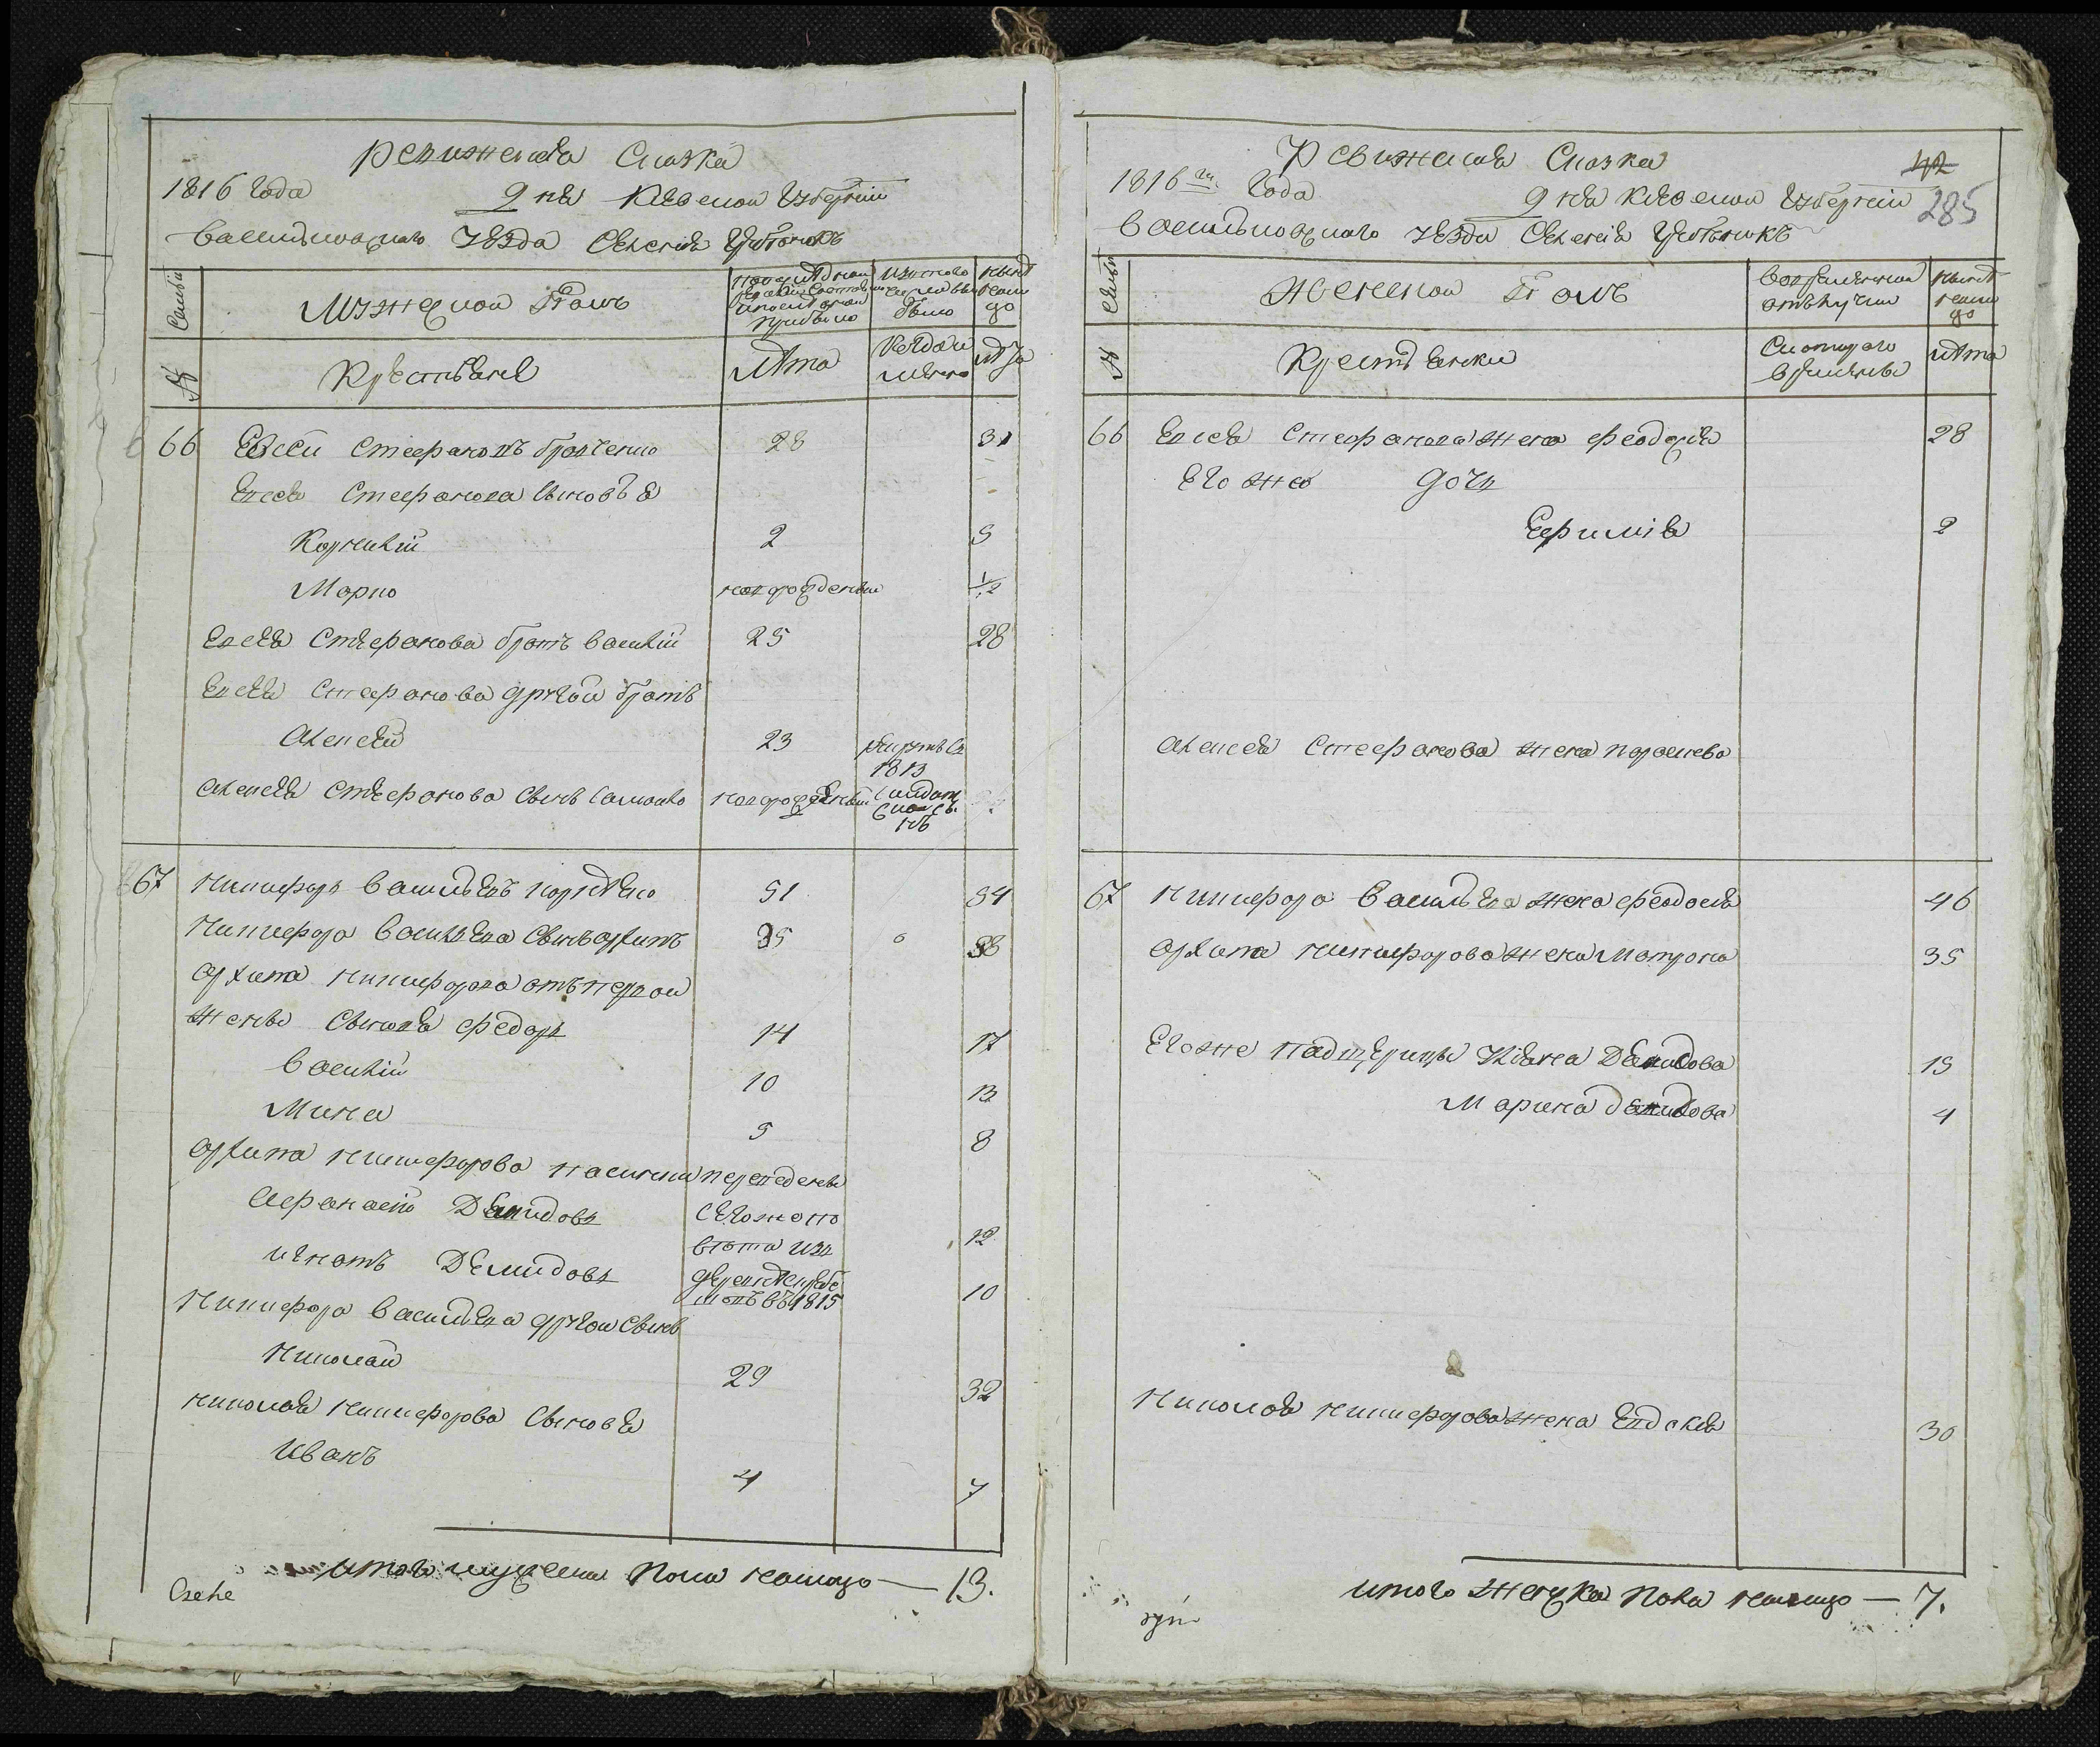 Ревижская Сказка
1816 Года 9 дня Киевской Губернии
Васильковского уезда Селения
Семьи
Мужеской Полъ
По последней ревизии состояло и после оной прибыло
Изъ того числа выбыло
Ныне на лицо
№
Крестьяне
Лета
Когда именно
Лета
66 Евсей Стефановъ 28 31
Евсея Стефанова Сыновья
Корнилий 2 5
Марко новорожденный 1/2
Евсея Стефанова братъ Василий 25 28
Евсея Стефанова другой братъ
Алексей 23
1813
Алексея Стефанова Сынъ Самойло новорожденный
67 Никифоръ Васильевъ 51 54
Никифора Васильева Сынъ Архипъ 35 38
Архипа Никифорова отъ первой
жены Сыновья Федоръ 14 17
Василий 10 13
Мина 5 8
Архипа Никифорова пасынки переведены
Афанасий Демидовъ 12
Игнатъ Демидовъ 10
въ 1815
Никифора Васильева другой Сынъ
Николай 29 32
Николая Никифорова Сыновья
Иванъ 4 7
Итого мужеска пола налицо — 13.
Ревижская Сказка
42
285
1816 го Года 9 дня Киевской Губернии
Васильковского уезда Селения
Семьи
Женской Полъ
Во временной отлучки
Ныне на лицо
№
Крестьянки
Съ которого времени
Лета
66 Евсея Стефанова жена Феодосия 28
Его же дочь
Ефимия 2
Алексея Стефанова жена
67 Никифора Васильева жена Феодосия 46
Архипа Никифорова жена Матрона 35
Его же падщерицы Ульяна Демидова 15
Марина Демидова 4
Николая Никифорова жена Евдокия 30
Итого женска пола налицо — 7.